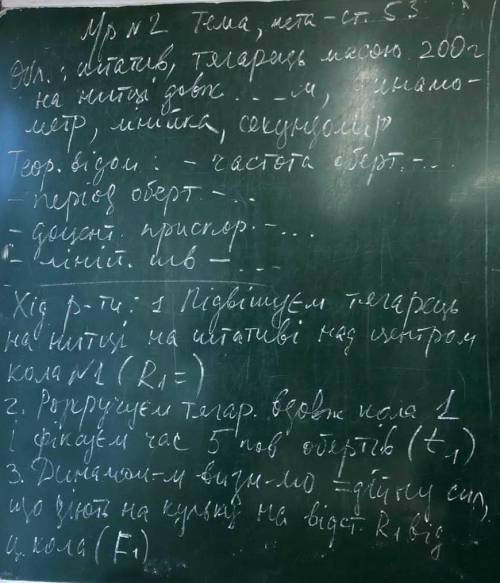 Мр №2 Тема, мета - ст. 53
Обл.: штатив, тягарець масою 200г
на нитці довж ..._м, динамо-
метр, лнийка, секундомір
Теор. відом: - частота оберт. -...
- період оберт. - ..
- доцент. прискор. -...
- ліній. шв - ...
Хід р-ти: 1 Підвішуєм тягарець
на нитці на штативі над центром
кола №1 (R₁=)
2. Розкручуєм тягар. вдовж кола 1
і фіксуєм час 5 пов обертів (t₁)
3. Динамом-м визн-мо =дійну сил,
що діють на кульку на відст. R₁ від
ц. кола (F₁)